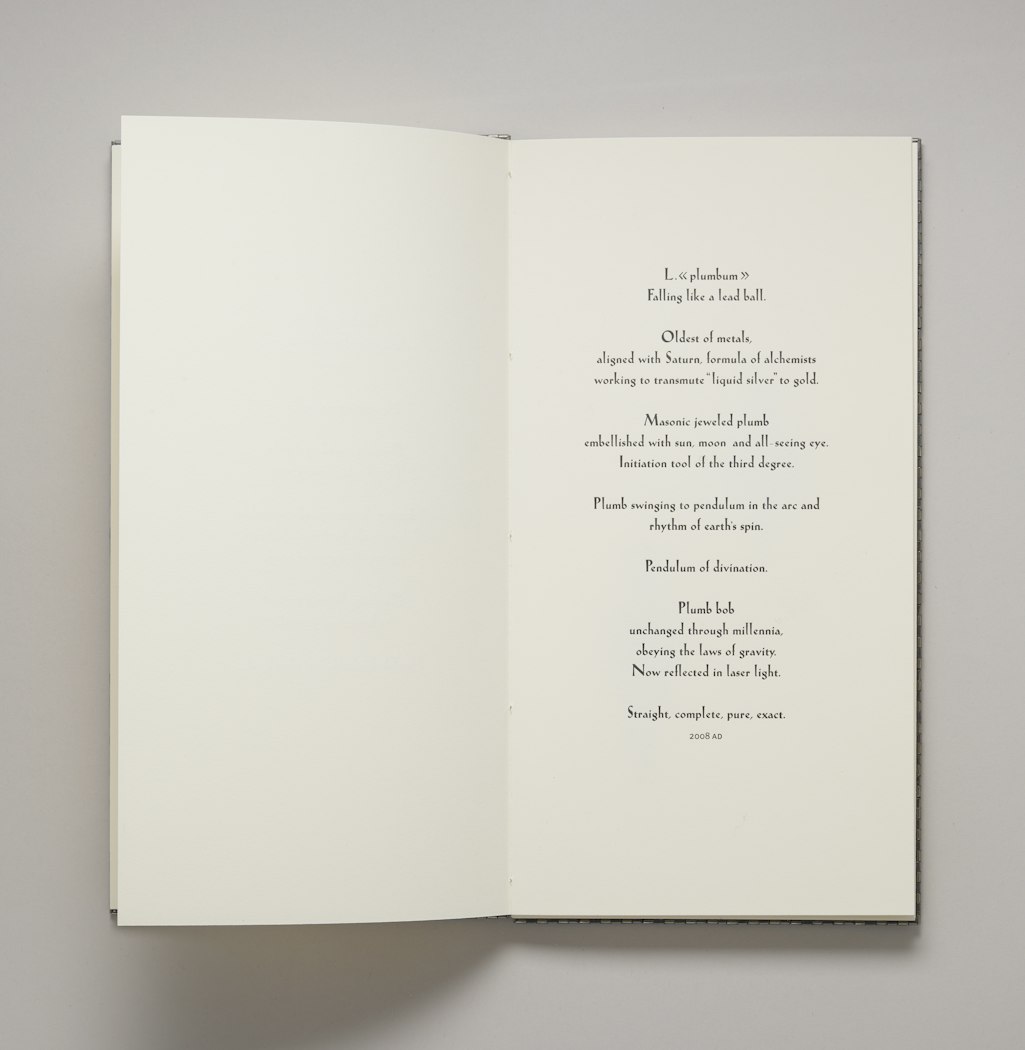 L. « plumbum »
Falling like a lead ball.
Oldest of metals,
aligned with Saturn, formula of alchemists
working to transmute "liquid silver" to gold.
Masonic jeweled plumb
embellished with sun, moon and all-seeing eye.
Initiation tool of the third degree.
Plumb swinging to pendulum in the arc and
rhythm of earth's spin.
Pendulum of divination.
Plumb bob
unchanged through millennia,
obeying the laws of gravity.
Now reflected in laser light.
Straight, complete, pure, exact.
2008 AD